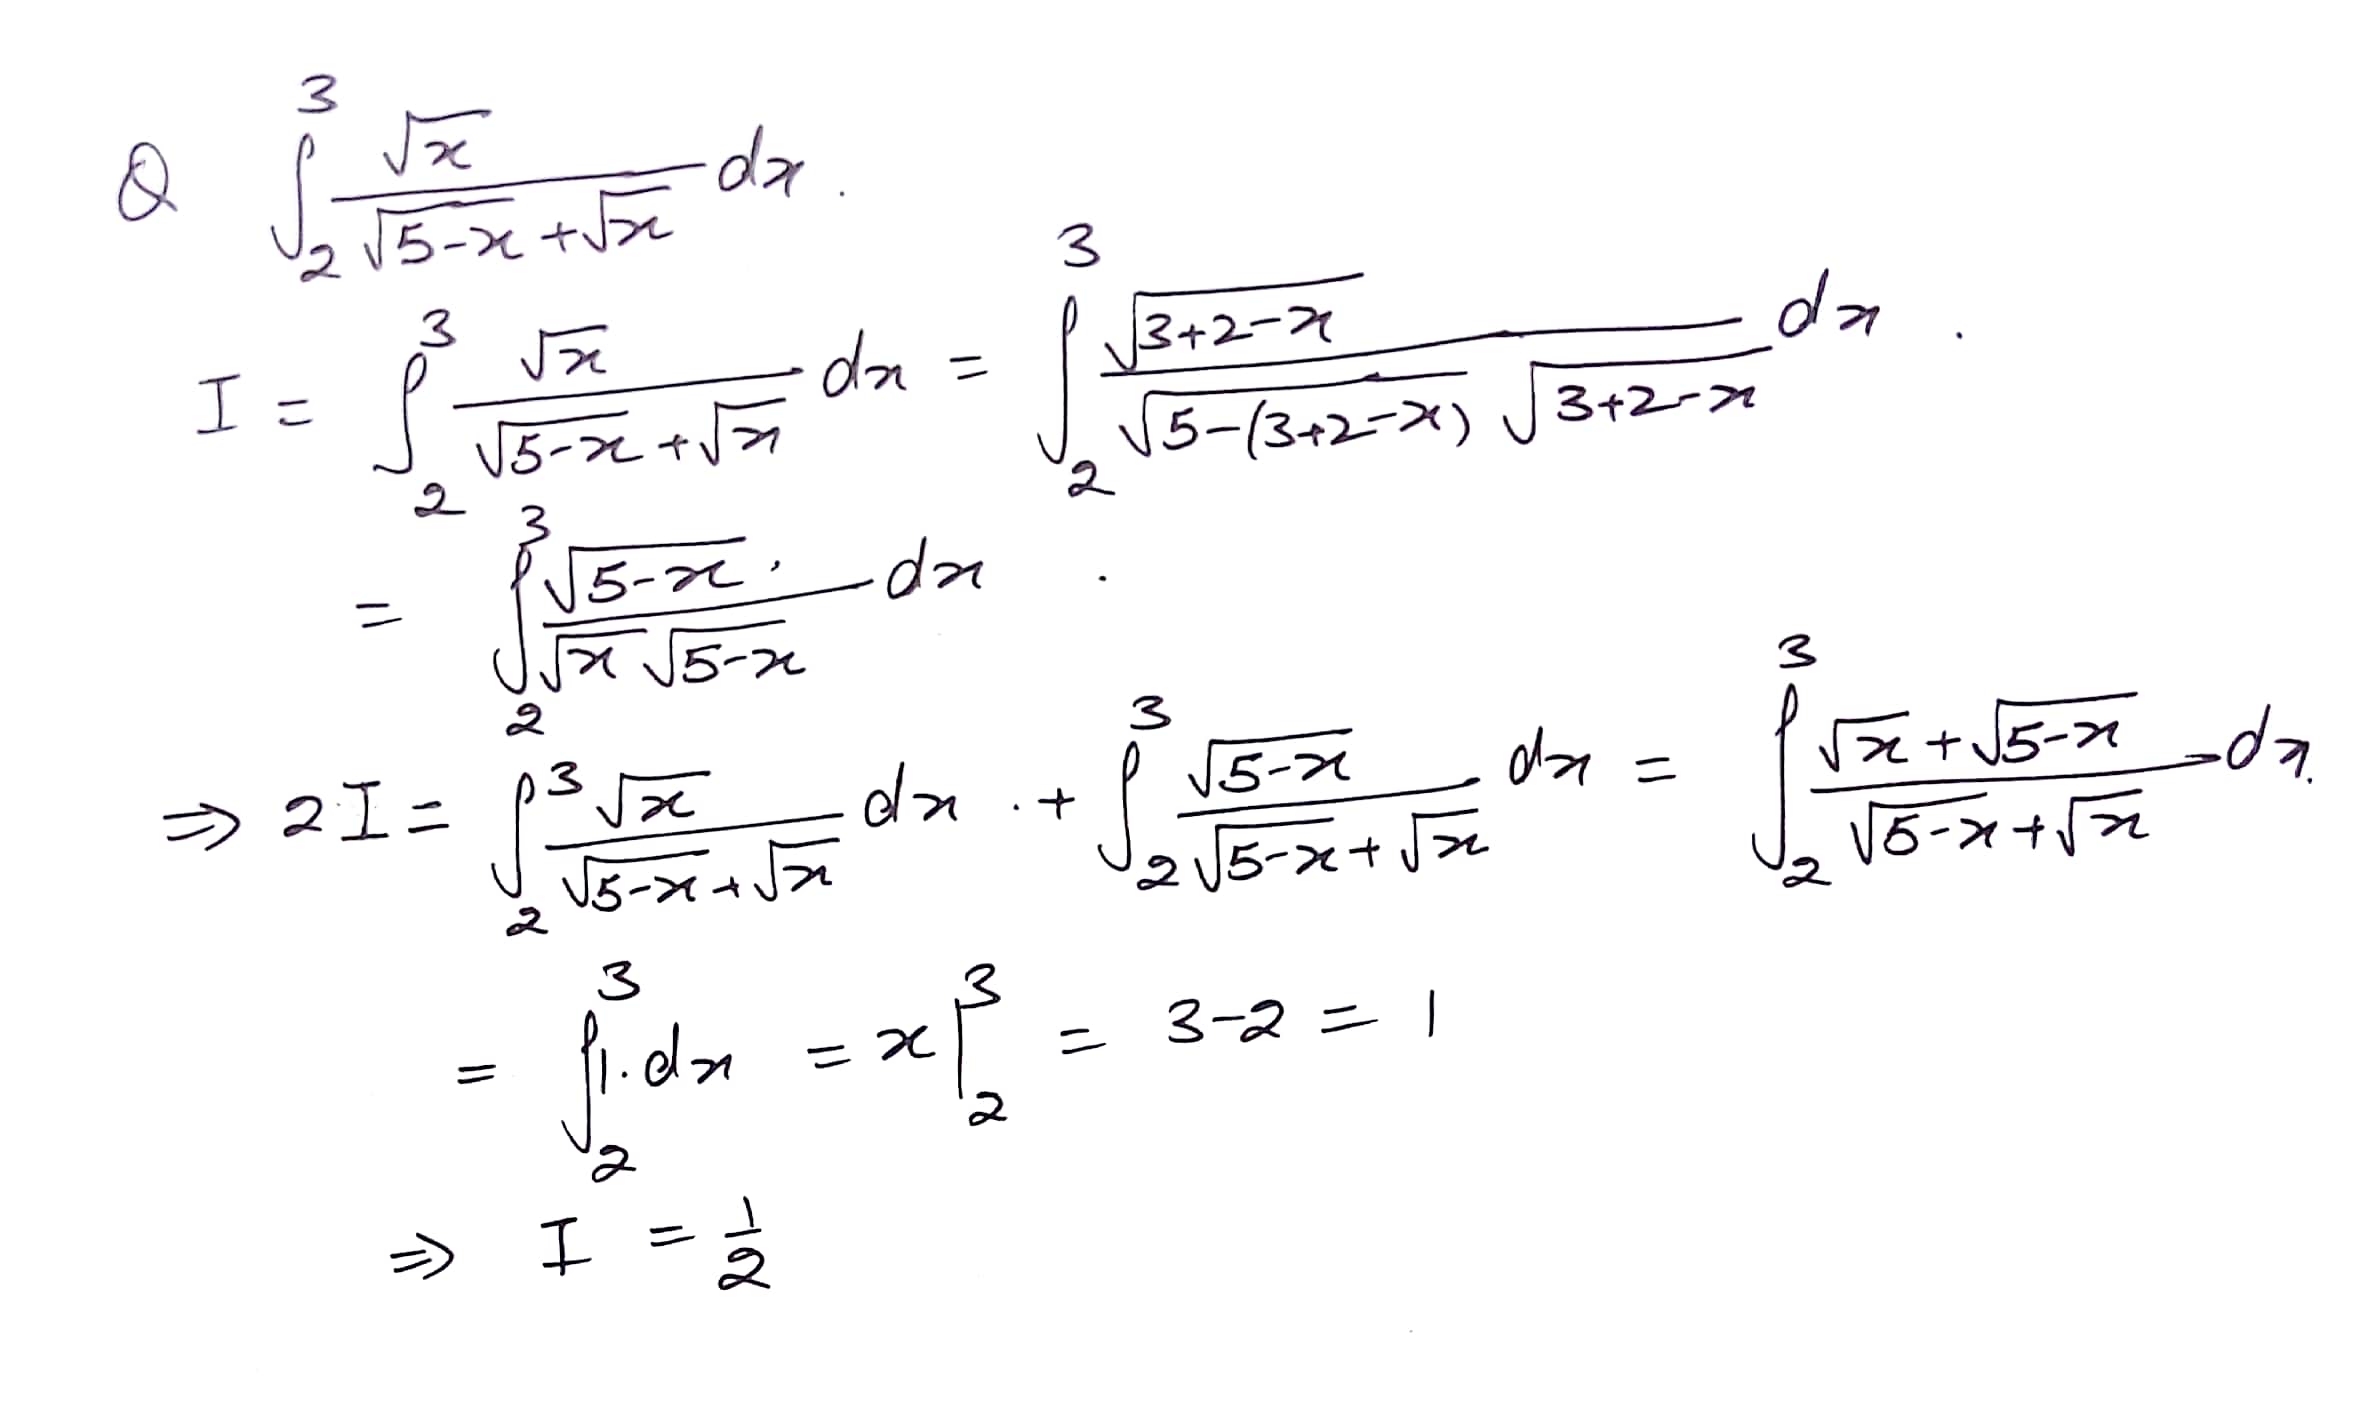 Q ∫_2^3 √x / (√(5-x) + √x) dx .
I = ∫_2^3 √x / (√(5-x) + √x) dx = ∫_2^3 √(3+2-x) / (√(5-(3+2-x)) √(3+2-x)) dx .
= ∫_2^3 √(5-x) / (√x √(5-x)) dx .
⇒ 2I = ∫_2^3 √x / (√(5-x) + √x) dx . + ∫_2^3 √(5-x) / (√(5-x) + √x) dx = ∫_2^3 (√x + √(5-x)) / (√(5-x) + √x) dx.
= ∫_2^3 1. dx = x |_2^3 = 3-2 = 1
⇒ I = 1/2